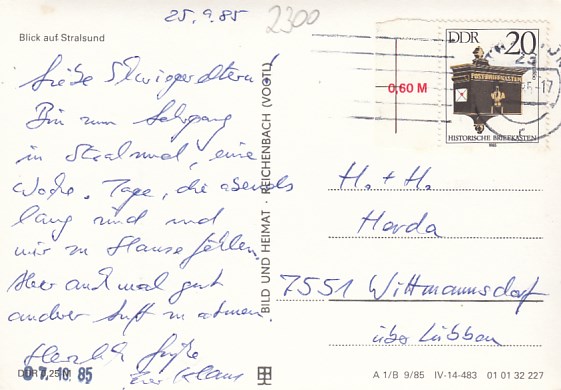 25.9.85
2300
Blick auf Stralsund
Liebe Schwiegereltern!
Bin zum Lehrgang
in Stralsund, eine
Woche. Tage, die abends
lang sind und
mir zu Hause fehlen.
Aber auch mal gut
andere Luft zu atmen.
Herzliche Grüße
Euer Klaus
DDR 0,25 M
07.10.85
BILD UND HEIMAT · REICHENBACH (VOGTL)
0,60 M
DDR 20
POSTBRIEFKASTEN
HISTORISCHE BRIEFKÄSTEN
1985
H. + H.
Horda
7551 Wittmannsdorf
über Lübben
A 1/B 9/85 IV-14-483 01 01 32 227